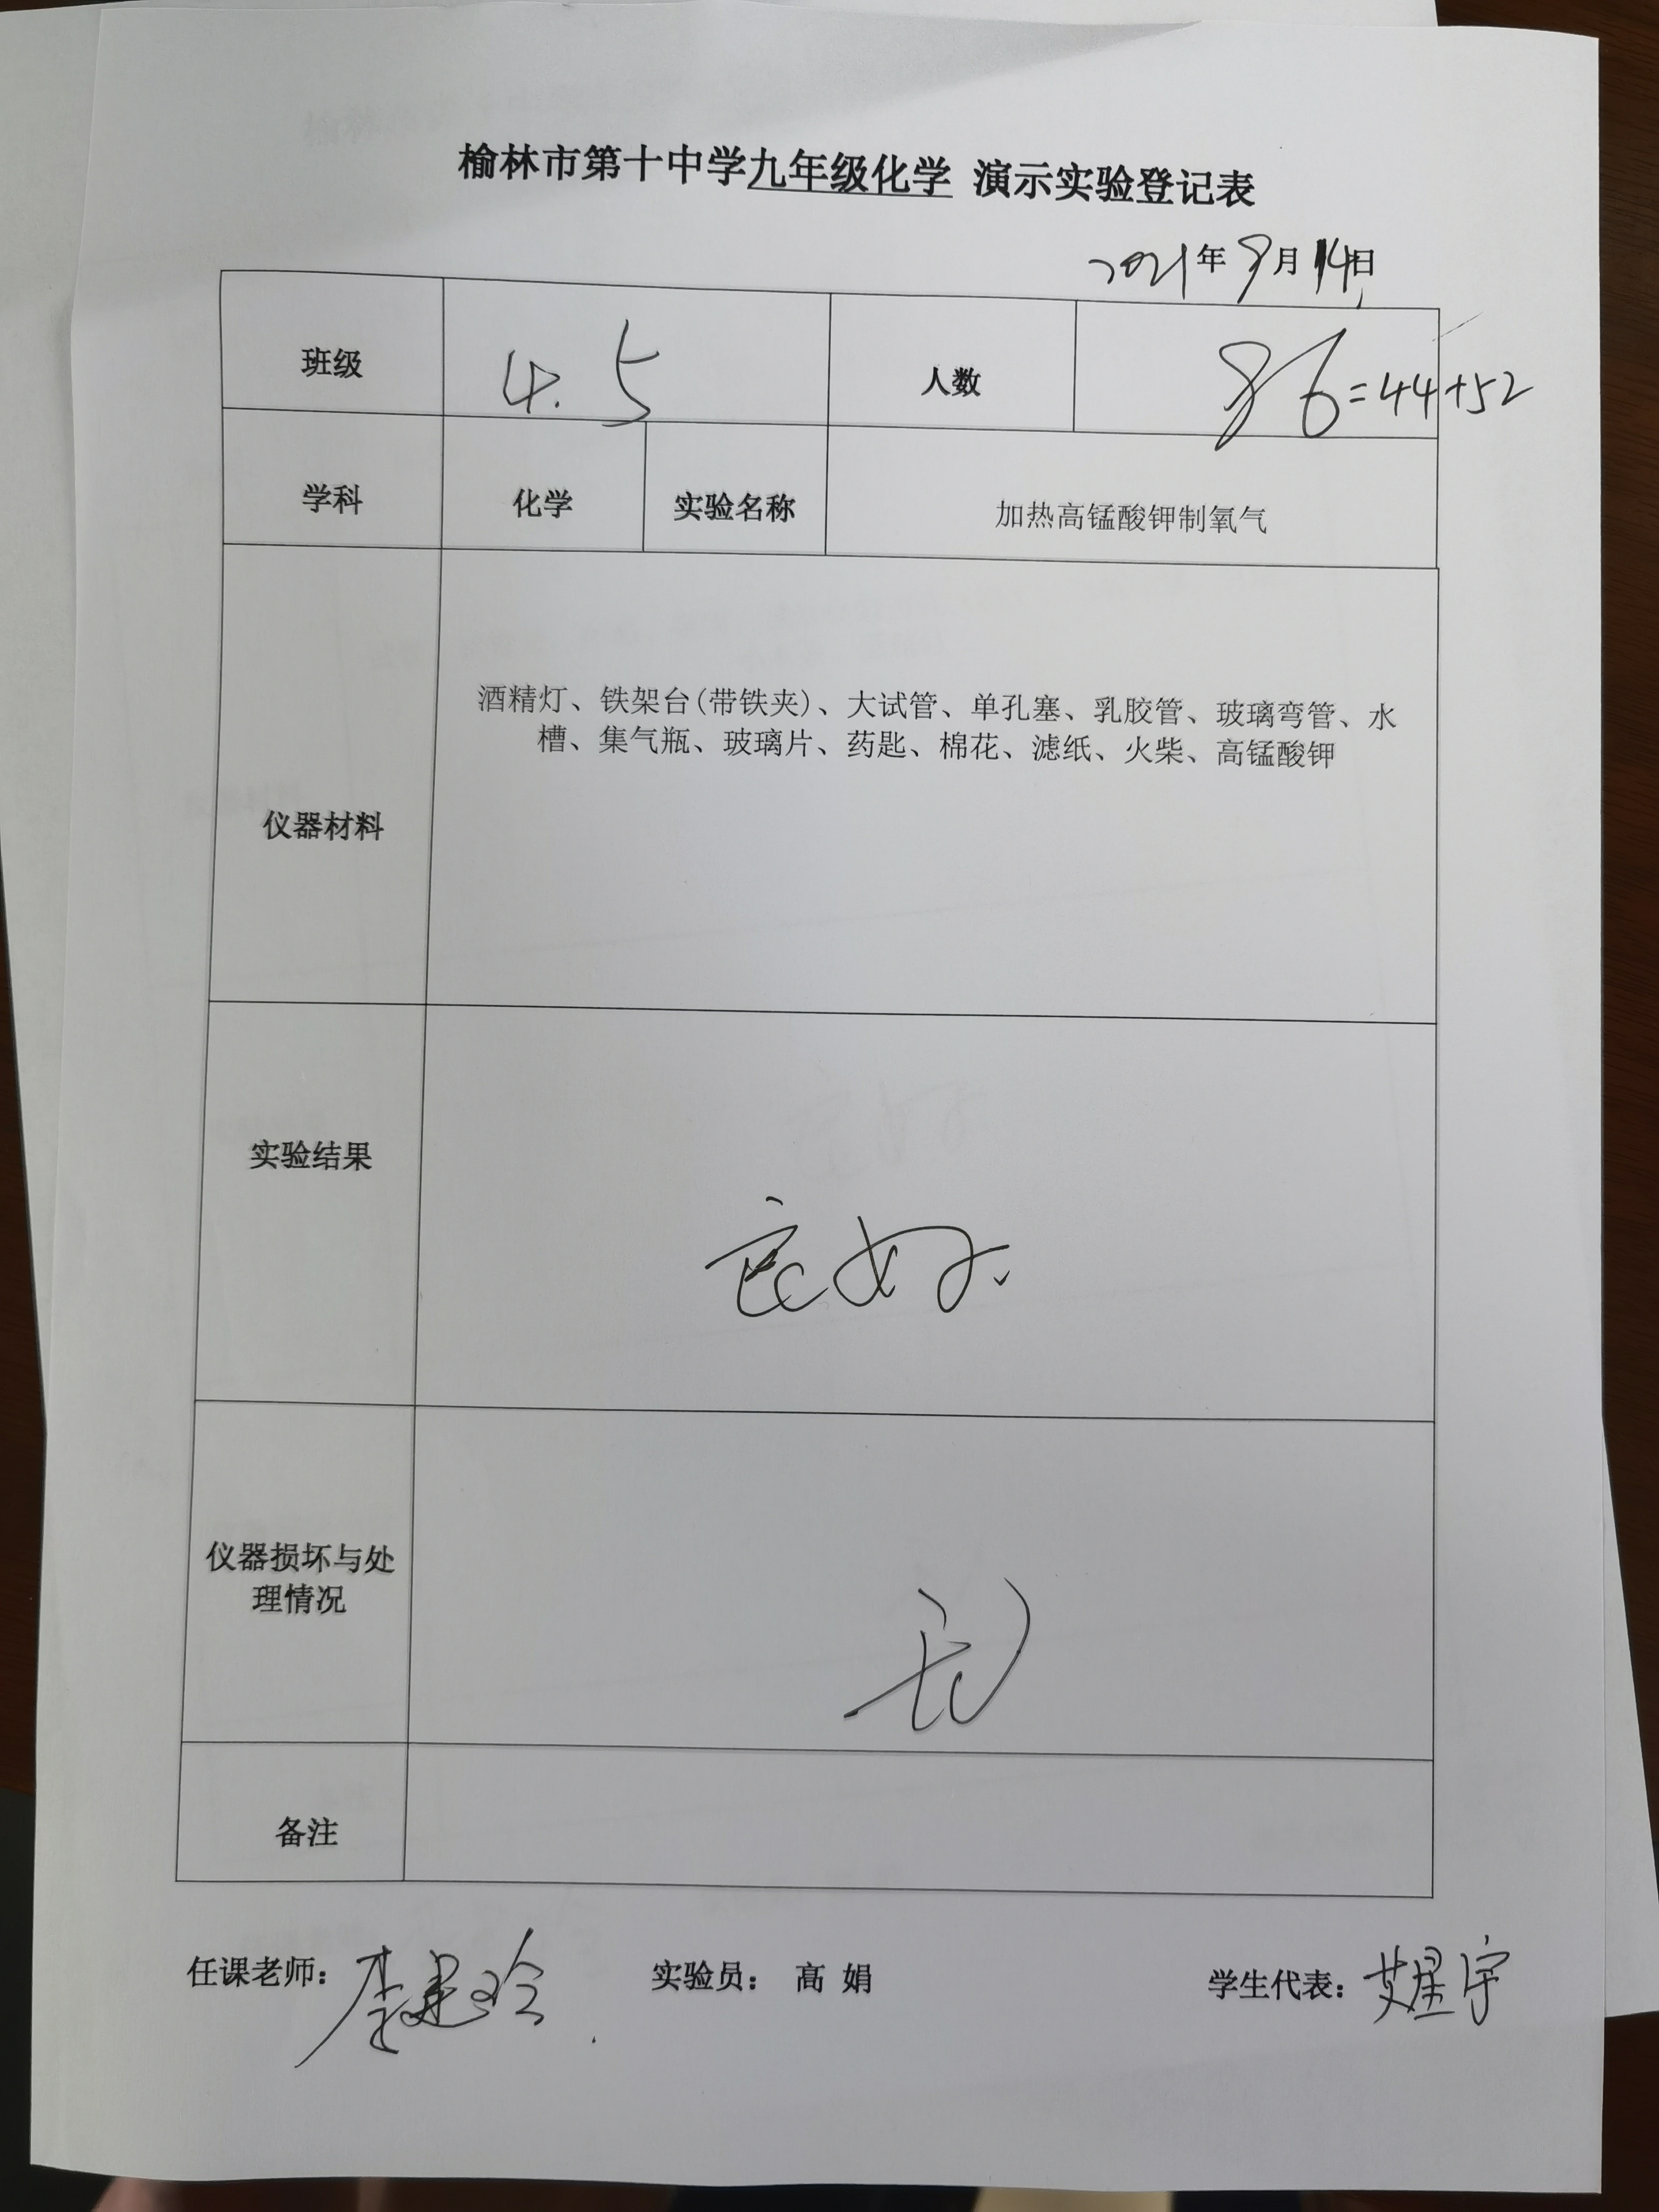 榆林市第十中学九年级化学 演示实验登记表
2021年9月14日
班级 4.5 人数 96=44+52
学科 化学 实验名称 加热高锰酸钾制氧气
仪器材料
酒精灯、铁架台(带铁夹)、大试管、单孔塞、乳胶管、玻璃弯管、水
槽、集气瓶、玻璃片、药匙、棉花、滤纸、火柴、高锰酸钾
实验结果
良好.
仪器损坏与处
理情况
无
备注
任课老师: 实验员: 高 娟 学生代表: 艾星宇